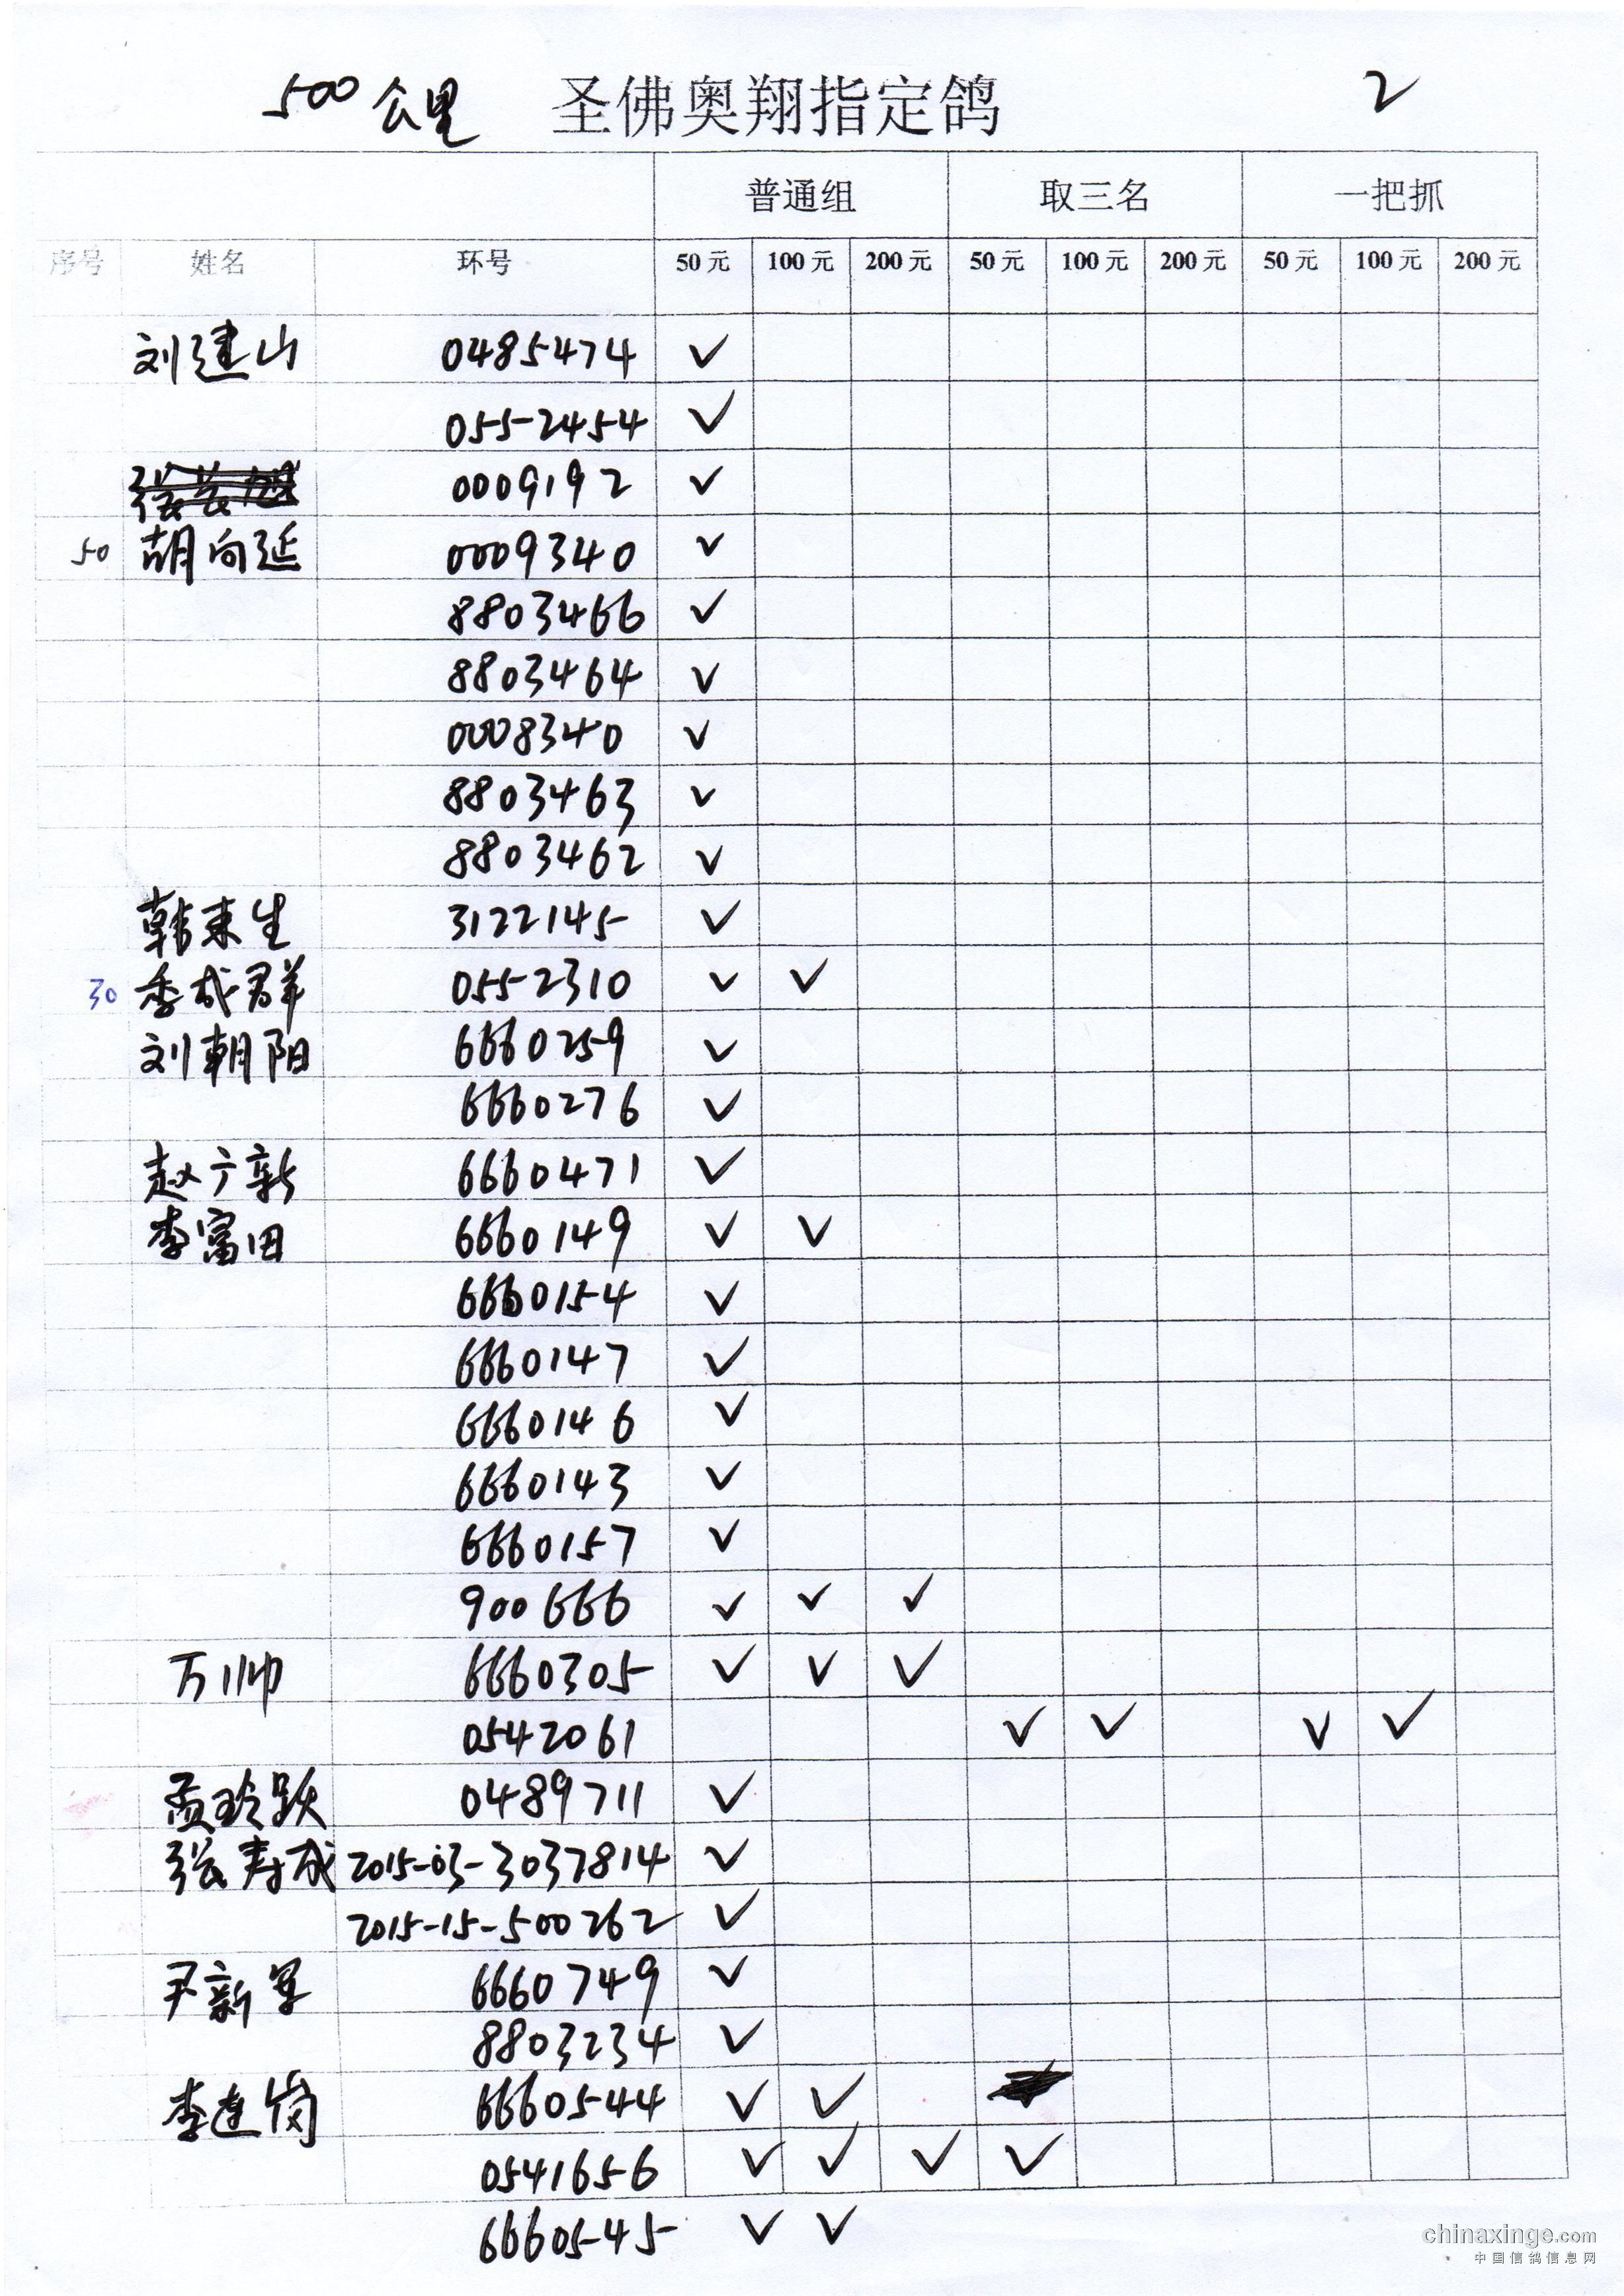 500公里 圣佛奥翔指定鸽 2
普通组 取三名 一把抓
序号 姓名 环号 50元 100元 200元 50元 100元 200元 50元 100元 200元
刘建山 0485474 ✓
055-2454 ✓
0009192 ✓
50 胡向延 0009340 ✓
8803466 ✓
8803464 ✓
0008340 ✓
8803463 ✓
8803462 ✓
韩来生 3122145 ✓
30 季成群 055-2310 ✓ ✓
刘朝阳 6660259 ✓
6660276 ✓
赵广新 6660471 ✓
李富田 6660149 ✓ ✓
6660154 ✓
6660147 ✓
6660146 ✓
6660143 ✓
6660157 ✓
900666 ✓ ✓ ✓
万帅 6660305 ✓ ✓ ✓
0542061 ✓ ✓ ✓ ✓
孟玲跃 0489711 ✓
张寿成 2015-03-3037814 ✓
2015-15-500262 ✓
尹新军 6660749 ✓
8803234 ✓
李连岗 6660544 ✓ ✓
0541656 ✓ ✓ ✓ ✓
6660545 ✓ ✓
chinaxinge.com
中国信鸽信息网